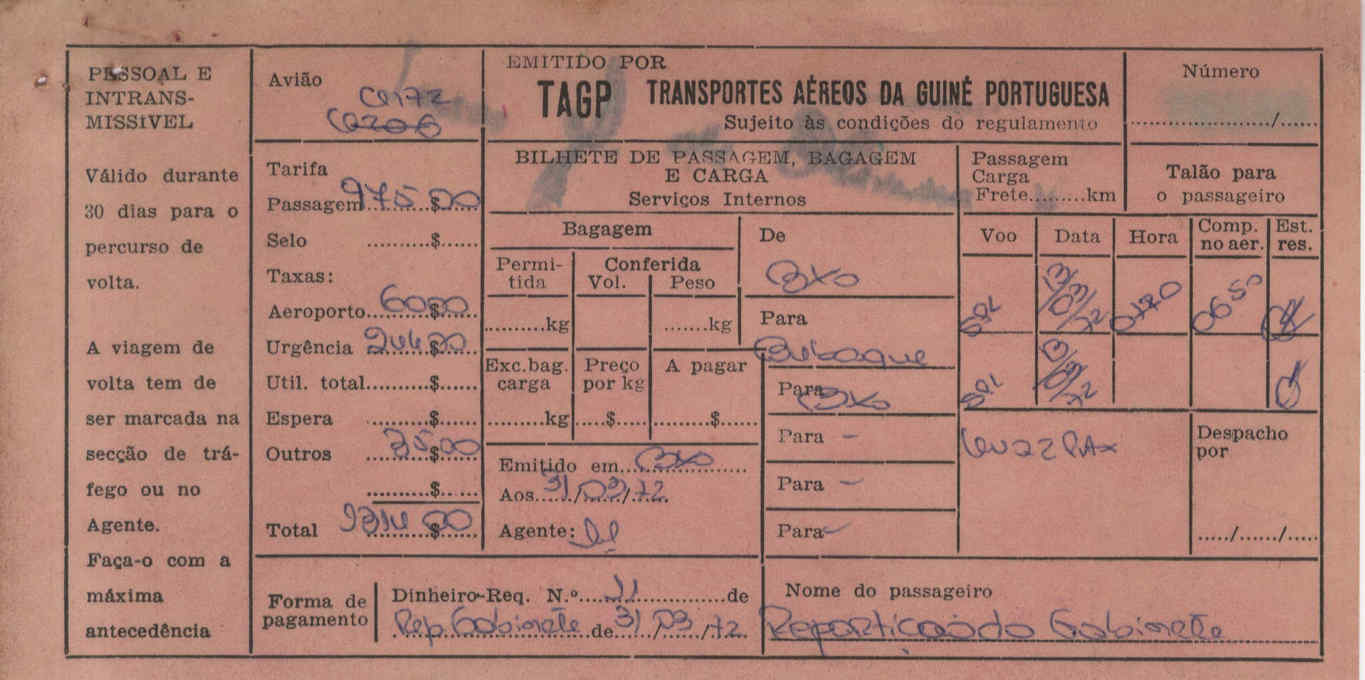 PESSOAL E
INTRANS-
MISSíVEL
Válido durante
30 dias para o
percurso de
volta.
A viagem de
volta tem de
ser marcada na
secção de trá-
fego ou no
Agente.
Faça-o com a
máxima
antecedência
Avião
Tarifa
Passagem 975$00
Selo .........$......
Taxas:
Aeroporto 60$00
Urgência 244$00
Util. total..........$......
Espera .........$......
Outros 35$00
.........$......
Total $00
EMITIDO POR
TAGP TRANSPORTES AÉREOS DA GUINÉ PORTUGUESA
Sujeito às condições do regulamento
Número
....................../......
BILHETE DE PASSAGEM, BAGAGEM
E CARGA
Serviços Internos
Passagem
Carga
Frete.........km
Talão para
o passageiro
Bagagem
Permi-
tida
Conferida
Vol. Peso
.........kg .......kg
Exc.bag.
carga
Preço
por kg
A pagar
.........kg .....$..... .........$.....
Emitido em Bxo
Aos 31/03/72
Agente:
De
Bxo
Para
Bubaque
Para
Bxo
Para -
Para -
Para -
Voo Data Hora Comp.
no aer. Est.
res.
SPL 13/03/72 0650 OK
SPL 13/03/72
22 PAX
Despacho
por
...../....../.....
Forma de
pagamento
Dinheiro-Req. N.º 11 de
Rep. Gabinete de 31/03/72
Nome do passageiro
Repartição do Gabinete